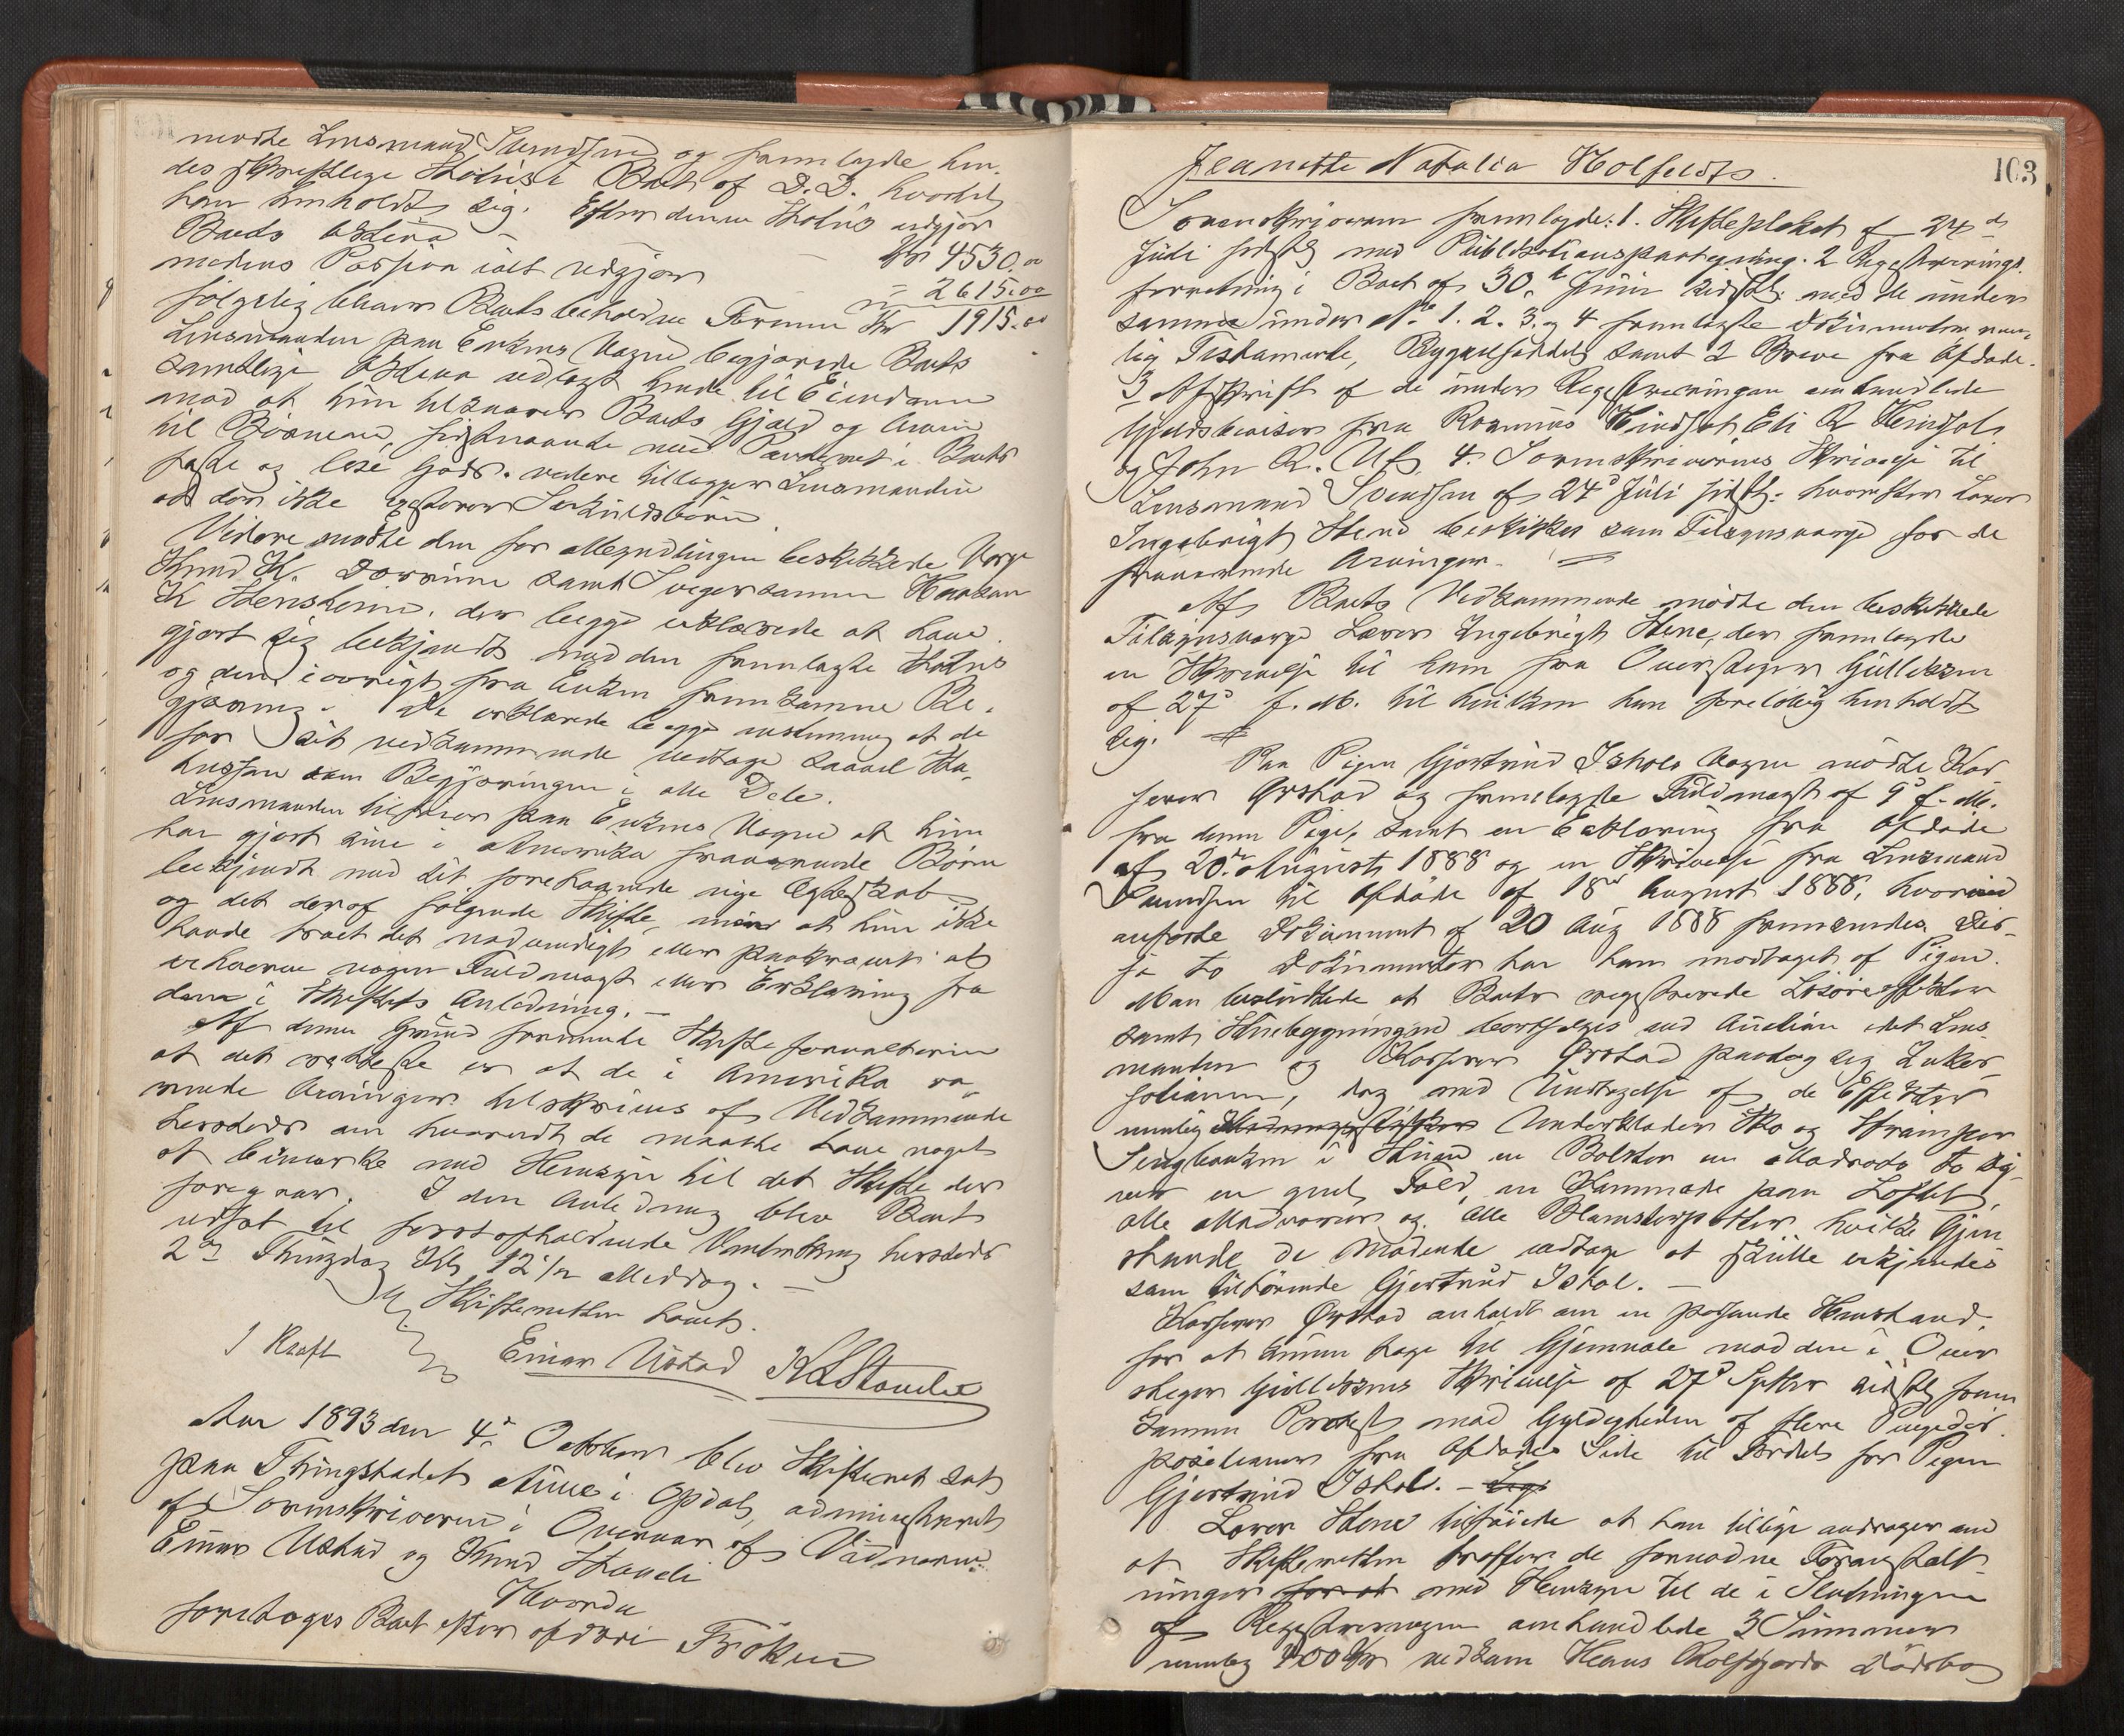 mødte Lensmand Svendsen og fremlagde hen-
des skriftlige Status i Boet af D.D. hvortil
han henholdt sig. Efter denne Status udgjør
Boets Aktiva Kr 4530.00
medens Passiva ialt udgjør " 2615.00
følgelig bliver Boets beholdne Formue Kr 1915.00
Lensmanden paa Enkens Vegne begjærede Boets
samtlige Aktiva udlagt hende til Eiendom
mod at hun tilsvarer Boets Gjæld og Arven
til Børnene, sidstnævnte med Panderet i Boets
faste og løse Gods. videre tillægger Lensmanden
at der ikke existerer Særkuldsbørn.
Videre mødte den for beskikkede Verge
Knud K. samt Svigersønnen Haakon
K Stensheim, der begge erklærede at have
gjort sig bekjendt med den fremlagte Status
og den iøvrigt fra Enken fremkomne Be-
gjæring. De erklærede begge at de
for sit vedkommende vedtage saavel Sta-
tussen som Begjæringen i alle Dele.
Lensmanden tilføier paa Enkens Vegne at hun
har gjort sine i Amerika fraværende Børn
bekjendt med sit forehavende nye Ægteskab
og det deraf følgende Skifte, men at hun ikke
havde troet det nødvendigt eller paakrævet at
erhverve nogen Fuldmagt eller Erklæring fra
dem i Skiftets Anledning. –
Af denne Grund formente Skifteforvalteren
at det retteste er at de i Amerika væ-
rende Arvinger tilskrives af Vedkommende
hersteds om hvorvidt de maatte have noget
at bemærke med Hensyn til det Skifte der
foregaar. I den Anledning blev Boet
udsat til førstafholdende hersteds
2den Thingdag Kl 12 1/2 Middag. –
Skifteretten hævet.
I Kraft
Einar Ustad K L Stande
Aar 1893 den 4de October blev Skifteret sat
paa Thingstedet Aune i Opdal, administreret
af Sorenskriveren i Overvær af Vidnerne
Einar Ustad og Knud Stande
Hvorda
foretoges Boet efter afdøde Frøken
103
Jeanette Natalia Holfeldts.
Sorenskriveren fremlagde: 1. Skifteplakat af 24de
Juli sidstl. med Publikationspaategning. 2 Registrerings-
forretning i Boet af 30te Juni sidstl. med de under
samme under No 1. 2. 3. og 4 fremlagte Dokumenter nem-
lig Testamente, Bygselseddel samt 2 Breve fra Afdøde.
3 Afskrift af de under Registreringen omhandlede
Gjeldsbeviser fra Rasmus Hindsol, Eli R Hindsol
og John R. 4. Sorenskriverens Skrivelse til
Lensmand Svendsen af 24d Juli sidstl. hvorefter Lærer
Ingebrigt Stene beskikkes som Tilsynsverge for de
fraværende Arvinger. –
Af Boets Vedkommende mødte den beskikkede
Tilsynsverge Lærer Ingebrigt Stene, der fremlagde
en Skrivelse til ham fra Overstiger Guldvåg
af 27d f. M. til hvilken han foreløbig henholdt
sig.
Paa Pigen Gjertrud Ishols Vegne mødte Kas-
serer Ørstad og fremlagde Fuldmagt af 9d f. M.
fra denne Pige, samt en Erklæring fra Afdøde
af 20de August 1888 og en Skrivelse fra Lensmand
Svendsen til Afdøde af 18de August 1888, hvorved
anførte Dokument af 20 Aug 1888 fremsendes. Dis-
se to Dokumenter har han modtaget af Pigen.
Man besluttede at Boets registrerede Løsøreeffekter
samt bortselges ved Auction idet Lens-
manden og Kasserer Ørstad paatog sig Inkas-
sationen, dog med Undtagelse af de Effekter
nemlig Underklæder Sko og Strømper
Sengbænken i Stuen en Bolster en Madrads to
en graa Fæld, en Kommode paa Loftet,
alle Madvarer og alle Blomsterpotter hvilke Gjen-
stande de Mødende vedtage at skulle erkjendes
som tilhørende Gjertrud Ishol. –
Kasserer Ørstad anholdt om en passende Henstand
for at kunne tage til Gjenmæle mod den i Over-
stiger Skrivelse af 27d Septbr sidstl. frem-
komne Protest mod Gyldigheden af flere
fra Afdødes Side til Fordel for Pigen
Gjertrud Ishol. –
Lærer Stene tilføiede at han tillige andrager om
at Skifteretten træffer de fornødne Foranstalt-
ninger for at med Hensyn til de i Slutningen
af Registreringen omhandlede 3 Summer
nemlig 400 Kr vedkom Hans Rolfsjords Dødsbo